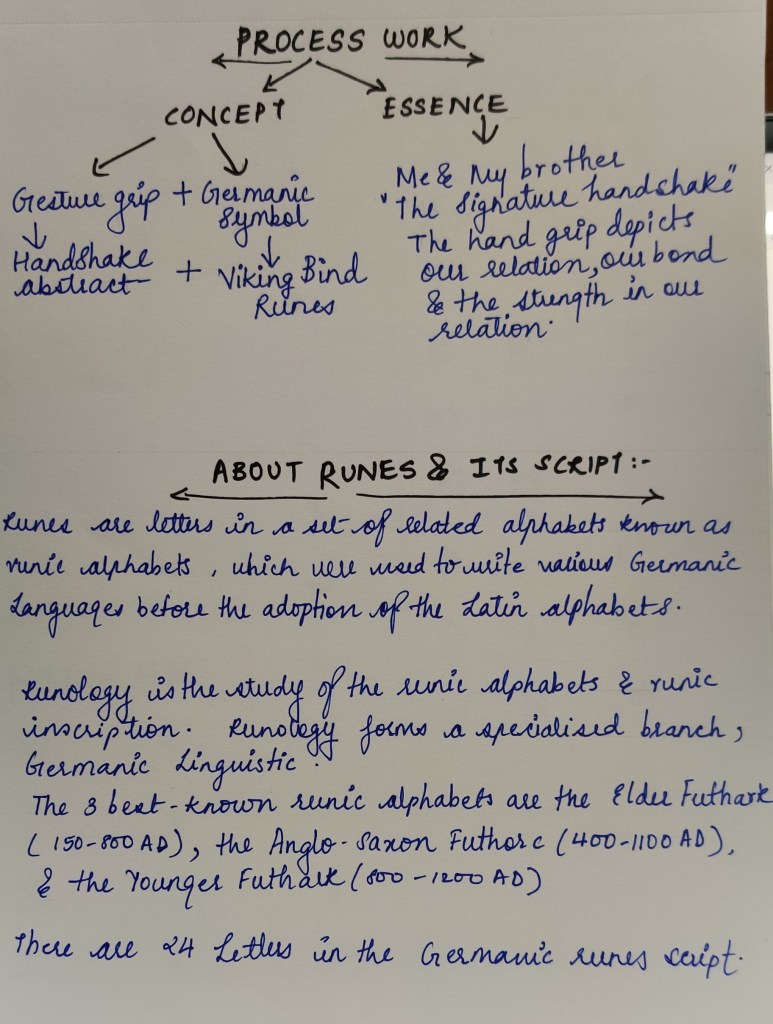 PROCESS WORK
CONCEPT ESSENCE
Gesture grip + Germanic Symbol
Handshake abstract + Viking Bind Runes
Me & My brother
"The Signature handshake"
The hand grip depicts
our relation, our bond
& the strength in our
relation.
ABOUT RUNES & ITS SCRIPT:-
Runes are letters in a set of related alphabets known as
runic alphabets, which were used to write various Germanic
Languages before the adoption of the Latin alphabets.
Runology is the study of the runic alphabets & runic
inscription. Runology forms a specialised branch,
Germanic Linguistic.
The 3 best-known runic alphabets are the Elder Futhark
(150-800 AD), the Anglo-Saxon Futhorc (400-1100 AD),
& the Younger Futhark (800-1200 AD)
There are 24 Letters in the Germanic runes script.